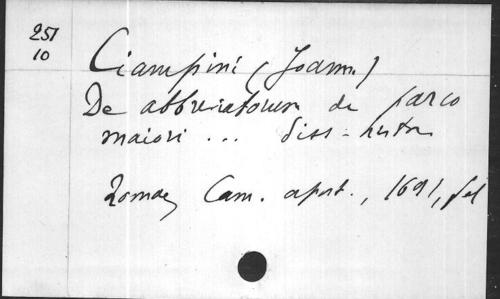 251
10
Ciampini (Joann.)
De abbreviatorum de parco
maiori ...
Romae, Cam. apost., 1691, fol